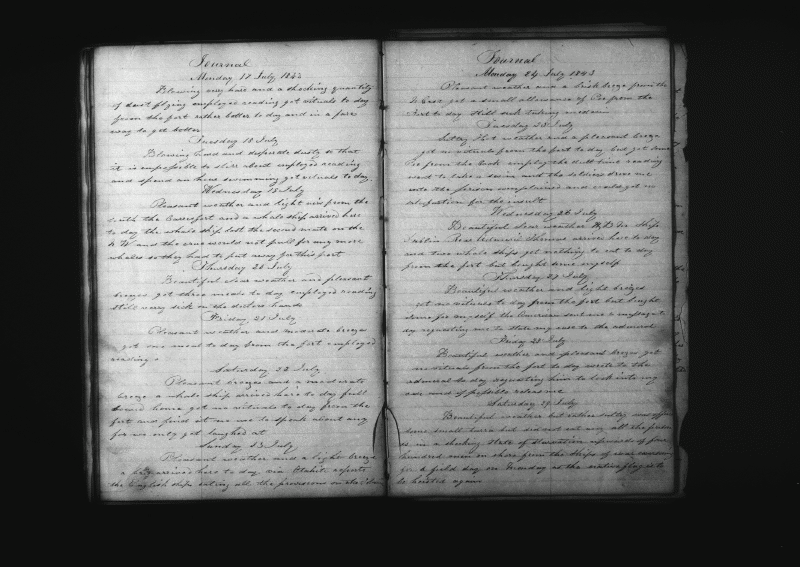 Journal
Monday 17 July 1843
Blowing very hard and a shocking quantity
of dust flying employed reading got victuals to day
from the fort rather better to day and in a fare
way to get better
Tuesday 18 July
Blowing hard and desperate dusty so that
it is impossible to stir about employed reading
and spend an hour swimming got victuals to day.
Wednesday 19 July
Pleasant weather and light airs from the
south the and a whale ship arrived here
to day the whale ship lost the second mate on the
N W and the crew would not pull for any more
whales so they had to put away for this port
Thursday 20 July
Beautiful clear weather and pleasant
breezes got three meals to day employed reading
still very sick in the doctors hands
Friday 21 July
Pleasant weather and moderate breeze
got one meal to day from the fort employed
reading
Saturday 22 July
Pleasant breezes and a moderate
breeze a whale ship arrived here to day full
bound home got no victuals to day from the
fort and find it no use to speak about any
for we only get laughed at
Sunday 23 July
Pleasant weather and a light breeze
a brig arrived here to day via Otahiti reports
the English ships eating all the provisions on
Journal
Monday 24 July 1843
Pleasant weather and a brisk breeze from the
got a small allowance of from the
Fort to day Still sick taking medicin
Tuesday 25 July
Sultry Hot weather and a pleasant breeze
got no victuals from the fort to day but got some
from the employ the time reading
went to take a swim and the soldiers drove me
the person complained and could get no
satisfaction for the insult
Wednesday 26 July
Beautiful clear weather H.B.M. Ship
arrived here to day
and two whale ships got nothing to eat to day
from the fort but bought some myself
Thursday 27 July
Beautiful weather and light breezes
got no victuals to day from the fort but bought
some for myself the American sent me a
day requesting me to state my case to the admiral
Friday 28 July
Beautiful weather and pleasant breezes got
no victuals from the fort to day wrote to the
admiral to day requesting him to look into my
case and if possible release me
Saturday 29 July
Beautiful weather but rather sultry
some small but did not eat any all the
is in a shocking state of starvation upwards of five
hundred men on shore from the ships of war
for a field day on Monday as the native flag is to
be hoisted again